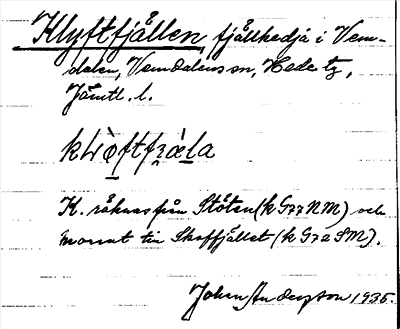 Klyftfjällen, fjällkedja i Vem-
dalen, Vemdalens sn, Hede tg,
Jämtl. l.
K. räknas från Stöten (k G77NM) och
norrut till Skaffjället (k G72SM).
Johan Anderson 1935.